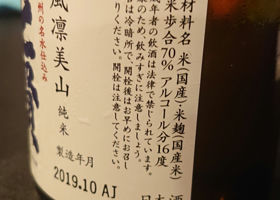 材料名 米(国産)、米麹(国産米)
米歩合70% アルコール分16度
成年者の飲酒は法律で禁じられています。
康のため、飲みすぎに注意しましょう。
は冷暗所で、開栓後はお早めにお召し
りください。開栓は注意してください。
風凛美山 純米
製造年月
2019.10 AJ
州の名水仕込み
日本酒